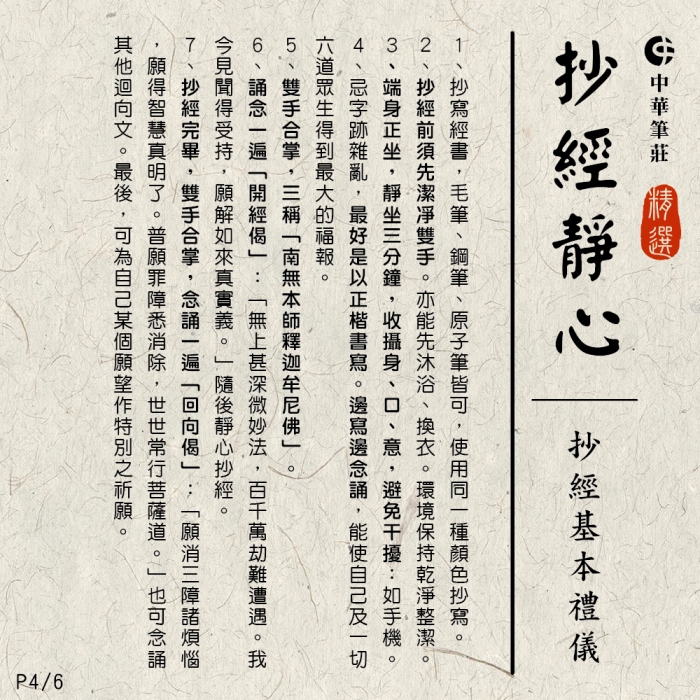 中華筆莊
精選
抄經靜心
抄經基本禮儀
1、抄寫經書，毛筆、鋼筆、原子筆皆可，使用同一種顏色抄寫。
2、抄經前須先潔淨雙手。亦能先沐浴、換衣。環境保持乾淨整潔。
3、端身正坐，靜坐三分鐘，收攝身、口、意，避免干擾：如手機。
4、忌字跡雜亂，最好是以正楷書寫。邊寫邊念誦，能使自己及一切
六道眾生得到最大的福報。
5、雙手合掌，三稱「南無本師釋迦牟尼佛」。
6、誦念一遍「開經偈」：「無上甚深微妙法，百千萬劫難遭遇。我
今見聞得受持，願解如來真實義。」隨後靜心抄經。
7、抄經完畢，雙手合掌，念誦一遍「回向偈」：「願消三障諸煩惱
，願得智慧真明了。普願罪障悉消除，世世常行菩薩道。」也可念誦
其他迴向文。最後，可為自己某個願望作特別之祈願。
P4/6